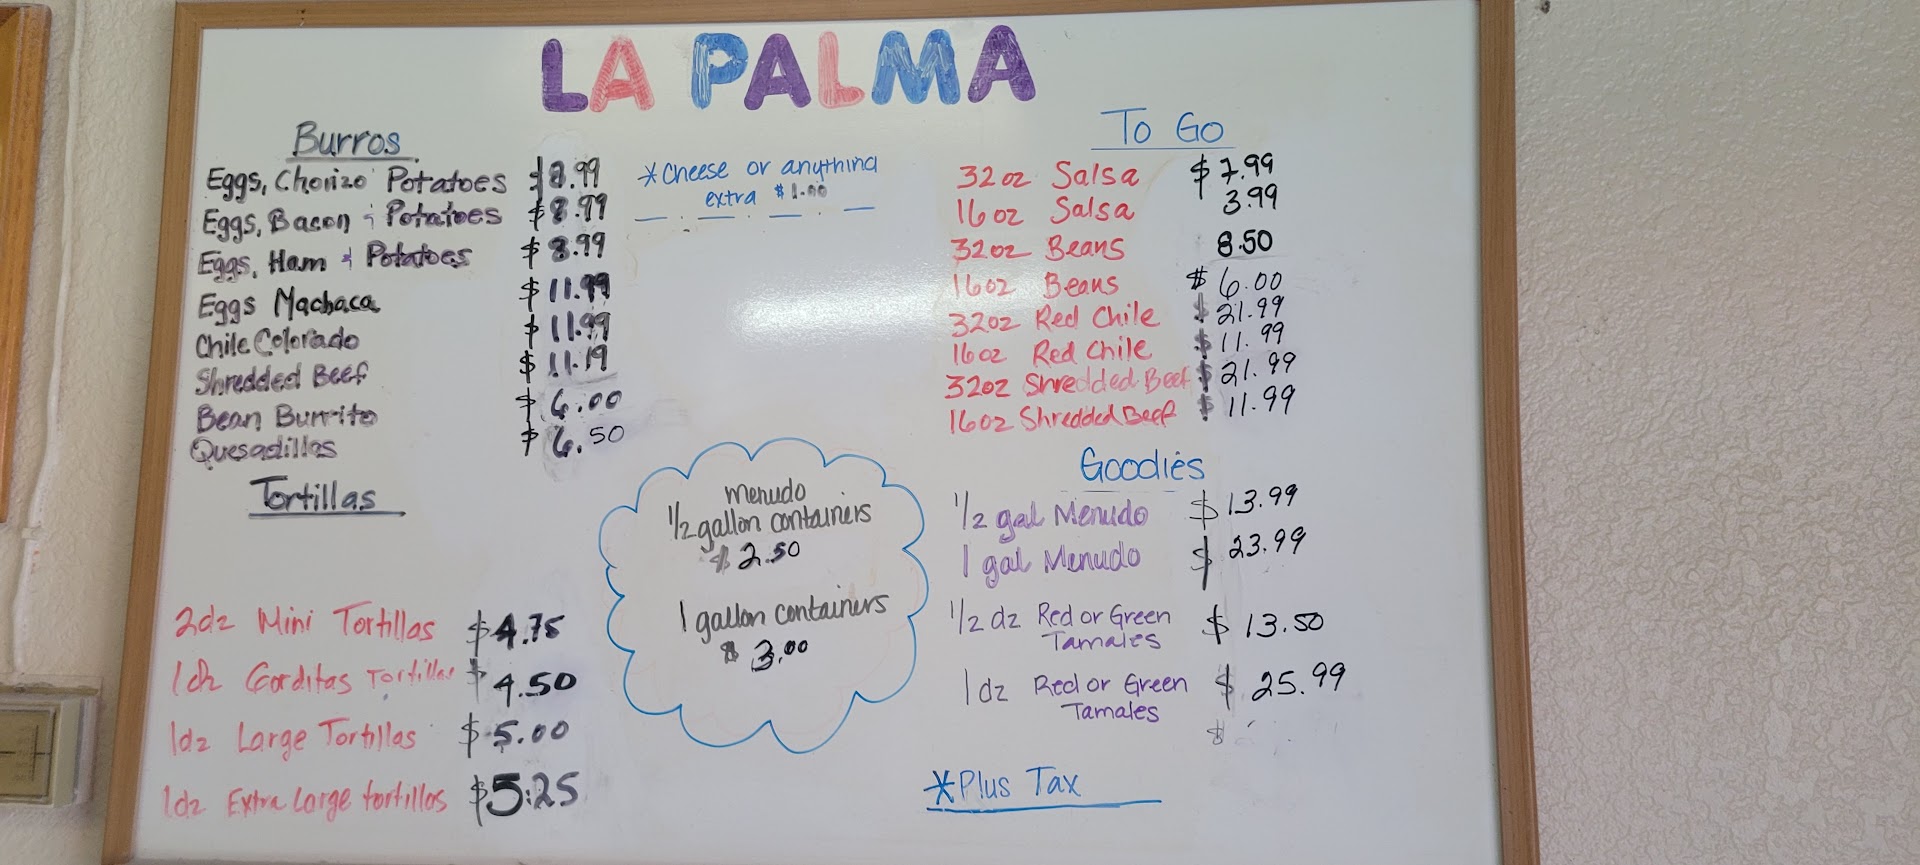 LA PALMA
Burros
Eggs, Chorizo Potatoes $8.99
Eggs, Bacon & Potatoes $8.99
Eggs, Ham & Potatoes $8.99
Eggs Machaca $11.99
Chile Colorado $11.99
Shredded Beef $11.19
Bean Burrito $6.00
Quesadillas $6.50
*Cheese or anything
extra $1.00
Tortillas
2dz Mini Tortillas $4.75
1dz Gorditas Tortillas $4.50
1dz Large Tortillas $5.00
1dz Extra Large tortillas $5.25
menudo
1/2 gallon containers
$2.50
1 gallon containers
$3.00
To Go
32oz Salsa $7.99
16oz Salsa 3.99
32oz Beans 8.50
16oz Beans $6.00
32oz Red Chile $21.99
16oz Red Chile $11.99
32oz Shredded Beef $21.99
16oz Shredded Beef $11.99
Goodies
1/2 gal Menudo $13.99
1 gal Menudo $23.99
1/2 dz Red or Green $13.50
Tamales
1dz Red or Green $25.99
Tamales
$
*Plus Tax